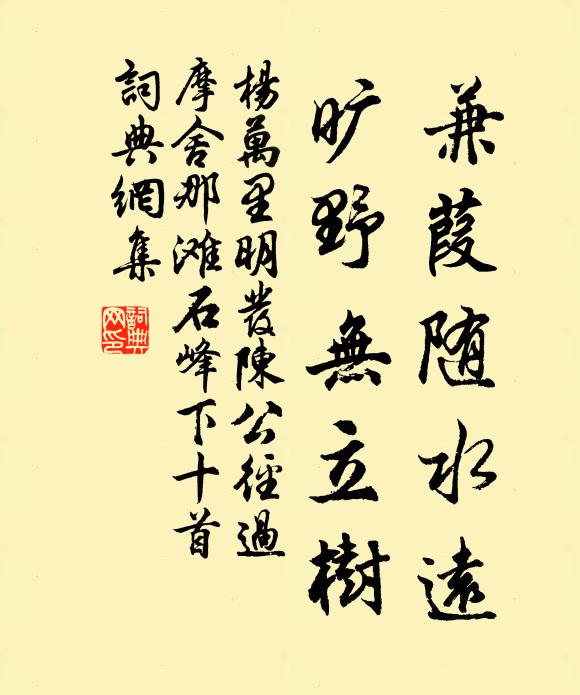 蒹葭随水遠
旷野無立樹
楊萬里明發陳公徑過
摩舍那滩石峰下十首
詞典網集
詞典网印